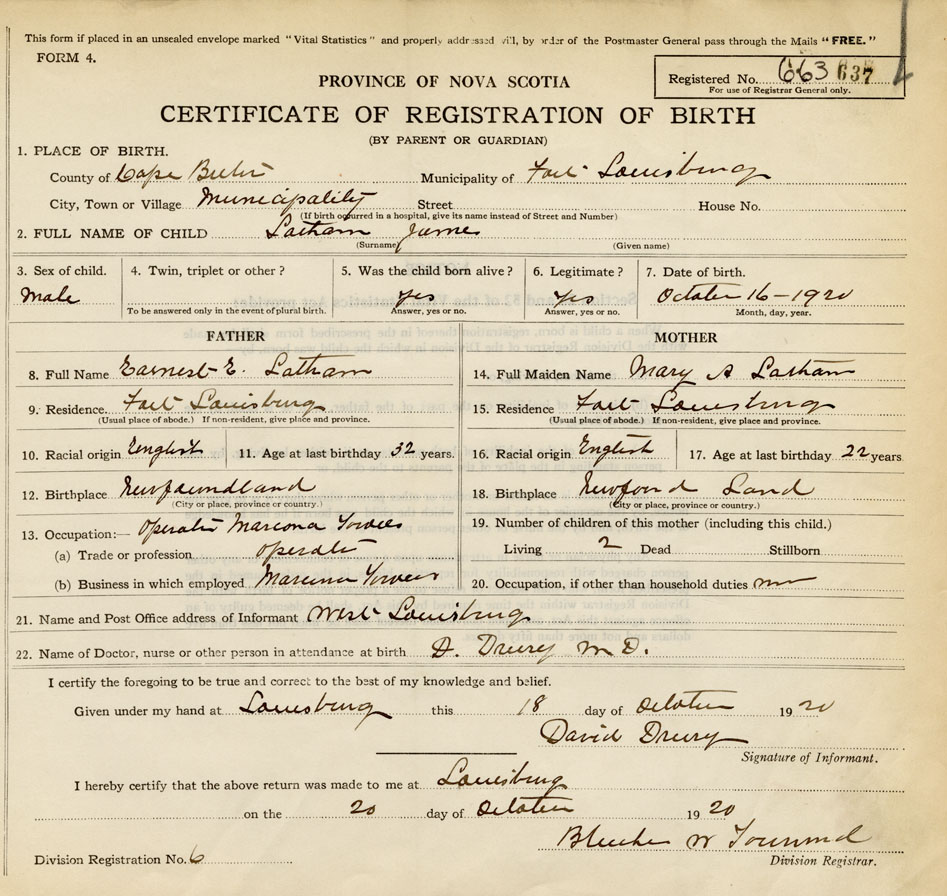 This form if placed in an unsealed envelope marked "Vital Statistics" and properly addressed will, by order of the Postmaster General pass through the Mails "FREE."
FORM 4.
Registered No. 663 637
For use of Registrar General only.
PROVINCE OF NOVA SCOTIA
CERTIFICATE OF REGISTRATION OF BIRTH
(BY PARENT OR GUARDIAN)
1. PLACE OF BIRTH.
County of Cape Breton Municipality of Fort Louisburg
City, Town or Village Municipality Street House No.
(If birth occurred in a hospital, give its name instead of Street and Number)
2. FULL NAME OF CHILD Latham James
(Surname) (Given name)
3. Sex of child. 4. Twin, triplet or other? 5. Was the child born alive? 6. Legitimate? 7. Date of birth.
Male yes Yes October 16-1920
To be answered only in the event of plural birth. Answer, yes or no. Answer, yes or no. Month, day, year.
FATHER MOTHER
8. Full Name Earnest E. Latham 14. Full Maiden Name Mary A Latham
9. Residence. Fort Louisburg 15. Residence Fort Louisburg
(Usual place of abode.) If non-resident, give place and province. (Usual place of abode.) If non-resident, give place and province.
10. Racial origin English 11. Age at last birthday 32 years. 16. Racial origin English 17. Age at last birthday 22 years.
12. Birthplace Newfoundland 18. Birthplace Newfound Land
(City or place, province or country.) (City or place, province or country.)
13. Occupation:— Operator Marcona Towers 19. Number of children of this mother (including this child.)
(a) Trade or profession operator Living 2 Dead Stillborn
(b) Business in which employed Marconi Towers 20. Occupation, if other than household duties
21. Name and Post Office address of Informant West Louisburg
22. Name of Doctor, nurse or other person in attendance at birth D. Drury M D.
I certify the foregoing to be true and correct to the best of my knowledge and belief.
Given under my hand at Louisburg this 18 day of October 1920
David Drury
Signature of Informant.
I hereby certify that the above return was made to me at Louisburg
on the 20 day of October 1920
W Townsend
Division Registration No. 6 Division Registrar.